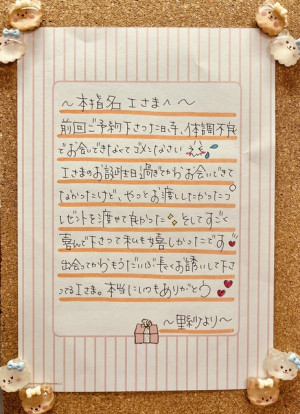 〜本指名 Iさまへ〜
前回ご予約下さった日、体調不良
でお会いできなくてゴメンなさい
Iさまのお誕生日過ぎてからお会いできて
なかったけど、やっとお渡ししたかったプ
レゼントを渡せて良かった✨そしてすごく
喜んで下さって私も嬉しかったです
出会ってからもうだいぶ長くお誘いして下さ
ってるIさま。本当にいつもありがとう
〜里紗より〜